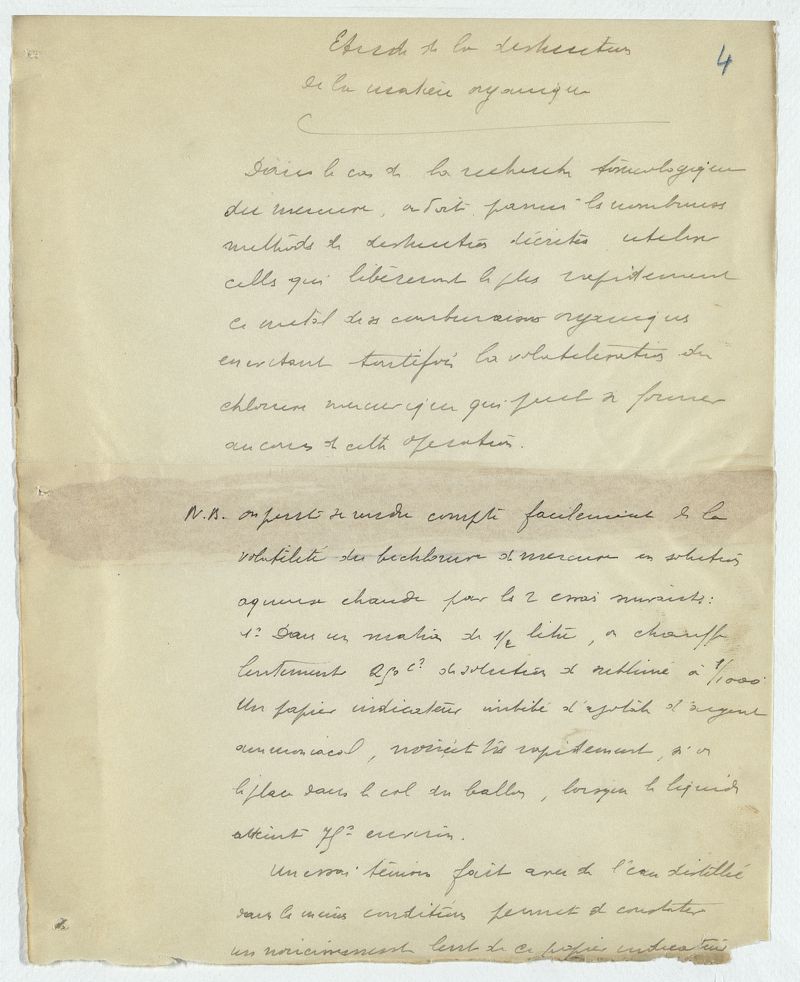 Etude de la destruction
4
de la matière organique
Dans le cas de la recherche toxicologique
du mercure, on doit parmi les nombreuses
méthodes de destruction décrites utiliser
celles qui libéreront le plus rapidement
ce métal de ses combinaisons organiques
en évitant toutefois la volatilisation du
chlorure mercurique qui peut se former
au cours de cette opération.
N.B. on peut se rendre compte facilement de la
volatilité du bichlorure de mercure en solution
aqueuse chaude par les 2 essais suivants :
1º Dans un matras de 1/2 litre, on chauffe
lentement 250 c3 de solution de sublimé à 1/1000.
Un papier indicateur imbibé d'azotate d'argent
ammoniacal, noircit très rapidement, si on
le place dans le col du ballon, lorsque le liquide
atteint 75º environ.
Un essai témoin fait avec de l'eau distillée
dans les mêmes conditions permet de constater
un noircissement lent de ce papier indicateur